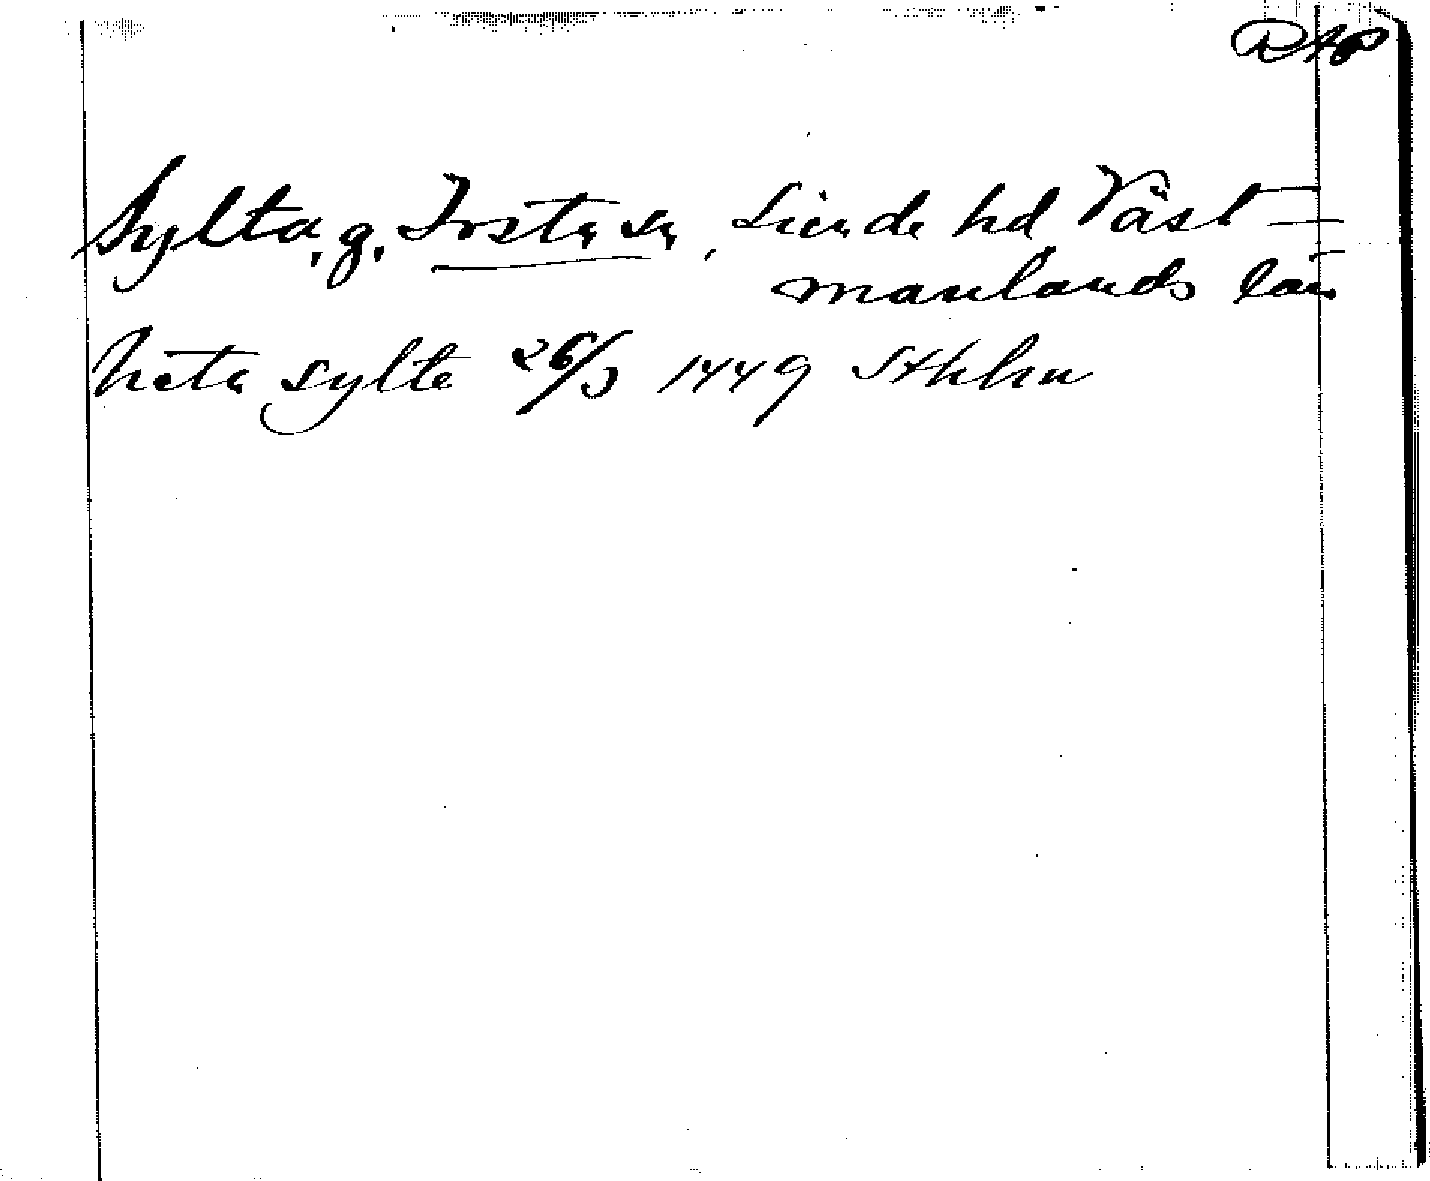 RAp
Sylta, g. Torstuna sn, Linde hd Väst-
manlands län
heta sylte 26/3 1449 Sthlm